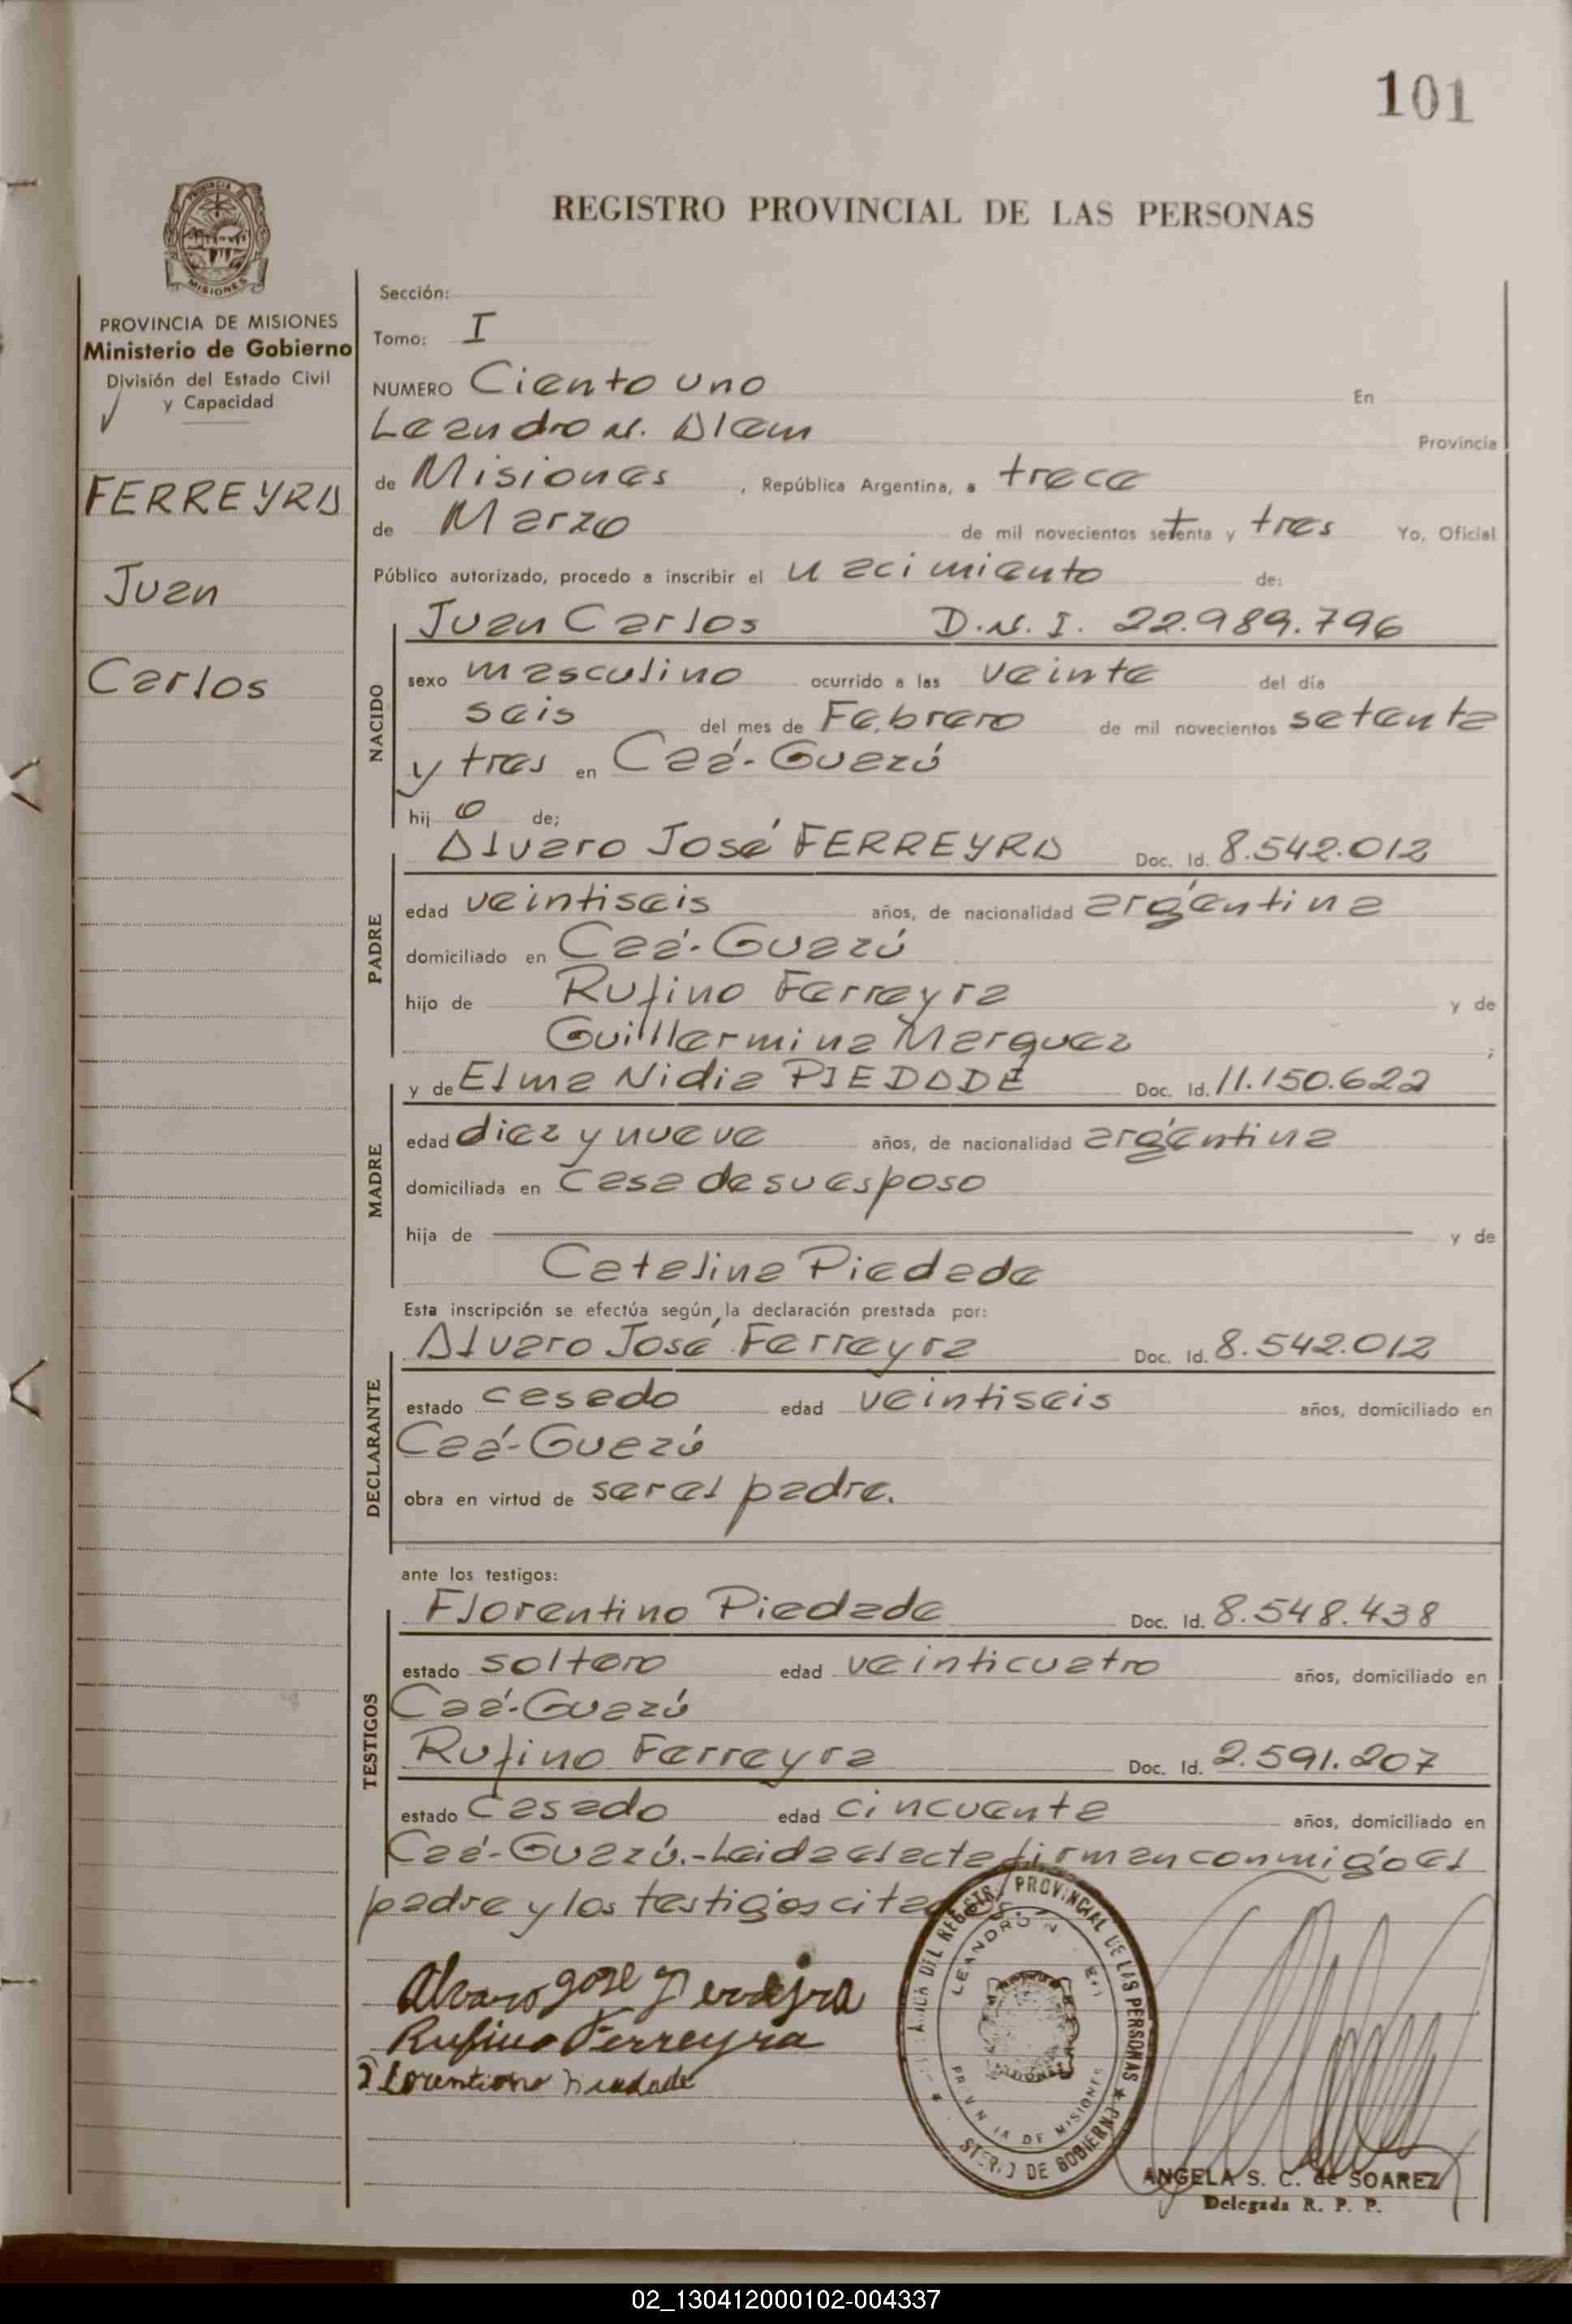 101
REGISTRO PROVINCIAL DE LAS PERSONAS
PROVINCIA DE MISIONES
Ministerio de Gobierno
División del Estado Civil
y Capacidad
FERREYRA
Juan
Carlos
Sección:
Tomo: I
NUMERO Ciento uno En
Leandro N. Alem Provincia
de Misiones, República Argentina, a trece
de Marzo de mil novecientos setenta y tres Yo, Oficial
Público autorizado, procedo a inscribir el nacimiento de:
NACIDO
Juan Carlos D.N.I. 22.989.796
sexo masculino ocurrido a las veinte del día
seis del mes de Febrero de mil novecientos setenta
y tres en Caá-Guazú
hijo de;
PADRE
Alvaro José FERREYRA Doc. Id. 8.542.012
edad veintiseis años, de nacionalidad argentina
domiciliado en Caá-Guazú
hijo de Rufino Ferreyra y de
Guillermina Marquez ;
MADRE
y de Elma Nidia PIEDADE Doc. Id. 11.150.622
edad diez y nueve años, de nacionalidad argentina
domiciliada en Casa de su esposo
hija de y de
Catalina Piedade
Esta inscripción se efectúa según la declaración prestada por:
DECLARANTE
Alvaro José Ferreyra Doc. Id. 8.542.012
estado casado edad veintiseis años, domiciliado en
Caá-Guazú
obra en virtud de ser el padre.
ante los testigos:
TESTIGOS
Florentino Piedade Doc. Id. 8.548.438
estado soltero edad veinticuatro años, domiciliado en
Caá-Guazú
Rufino Ferreyra Doc. Id. 2.591.207
estado Casado edad cincuenta años, domiciliado en
Caá-Guazú.-Leida el acta firman conmigo el
padre y los testigos
Alvaro Jose Ferreyra
Rufino Ferreyra
Florentino Piedade
DEL REGISTR. PROVINCIAL DE LAS PERSONAS
LEANDRO N.
DE MISIONES
DE GOBIERNO
ANGELA S. C. de SOAREZ
Delegada R. P. P.
02_130412000102-004337